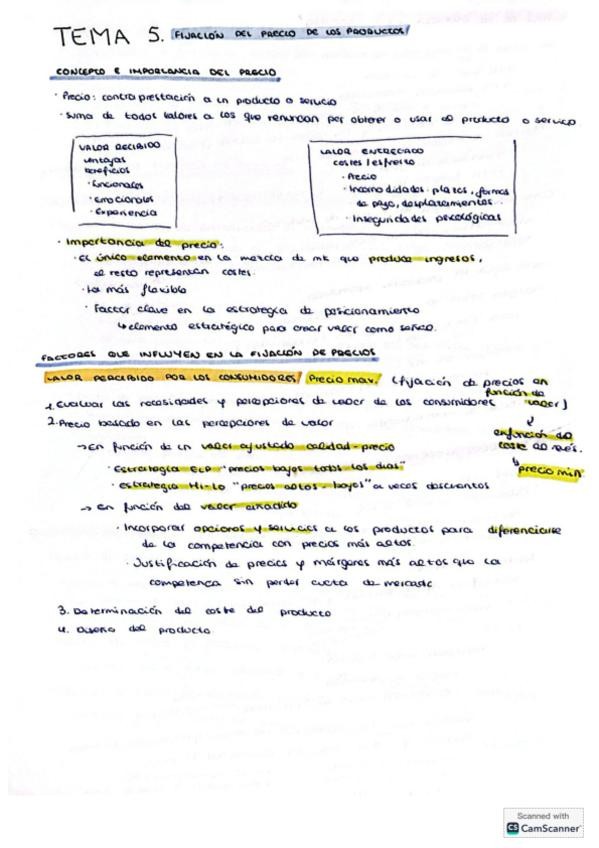 TEMA 5. FIJACIÓN DEL PRECIO DE LOS PRODUCTOS
CONCEPTO E IMPORTANCIA DEL PRECIO
· Precio: contraprestación a un producto o servicio
· Suma de todos valores a los que renuncian por obtener o usar el producto o servicio.
VALOR RECIBIDO
ventajas
beneficios
· Funcionales
· Emocionales
· Experiencia
VALOR ENTREGADO
costes / esfuerzo
· Precio
· Incomodidades: plazos, formas
de pago, desplazamientos...
· Inseguridades psicológicas
· Importancia del precio:
· El único elemento en la mezcla de mk que produce ingresos,
el resto representan costes.
· La más flexible
· Factor clave en la estrategia de posicionamiento
↳ elemento estratégico para crear valor como
FACTORES QUE INFLUYEN EN LA FIJACIÓN DE PRECIOS
VALOR PERCIBIDO POR LOS CONSUMIDORES / Precio max. (fijación de precios en
función de
valor)
1. Evaluar las necesidades y percepciones de valor de los consumidores
2. Precio basado en las percepciones de valor
en función del
coste al revés.
↳ precio min
→ En función de un valor ajustado calidad-precio
· Estrategia ELP "precios bajos todos los días"
· Estrategia Hi-Lo "precios altos-bajos" a veces descuentos
→ en función del valor añadido
· Incorporar opciones y servicios a los productos para diferenciarse
de la competencia con precios más altos.
· Justificación de precios y márgenes más altos que la
competencia sin perder cuota de mercado.
3. Determinación del coste del producto
4. Diseño del producto
Scanned with
CS CamScanner